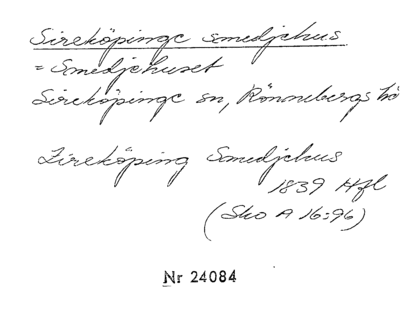 Sireköpinge smedjehus
= Smedjehuset
Sireköpinge sn, Rönnebergs hd
Zireköping Smedjehus
1839 Hfl
(Sko A 16:96)
Nr 24084